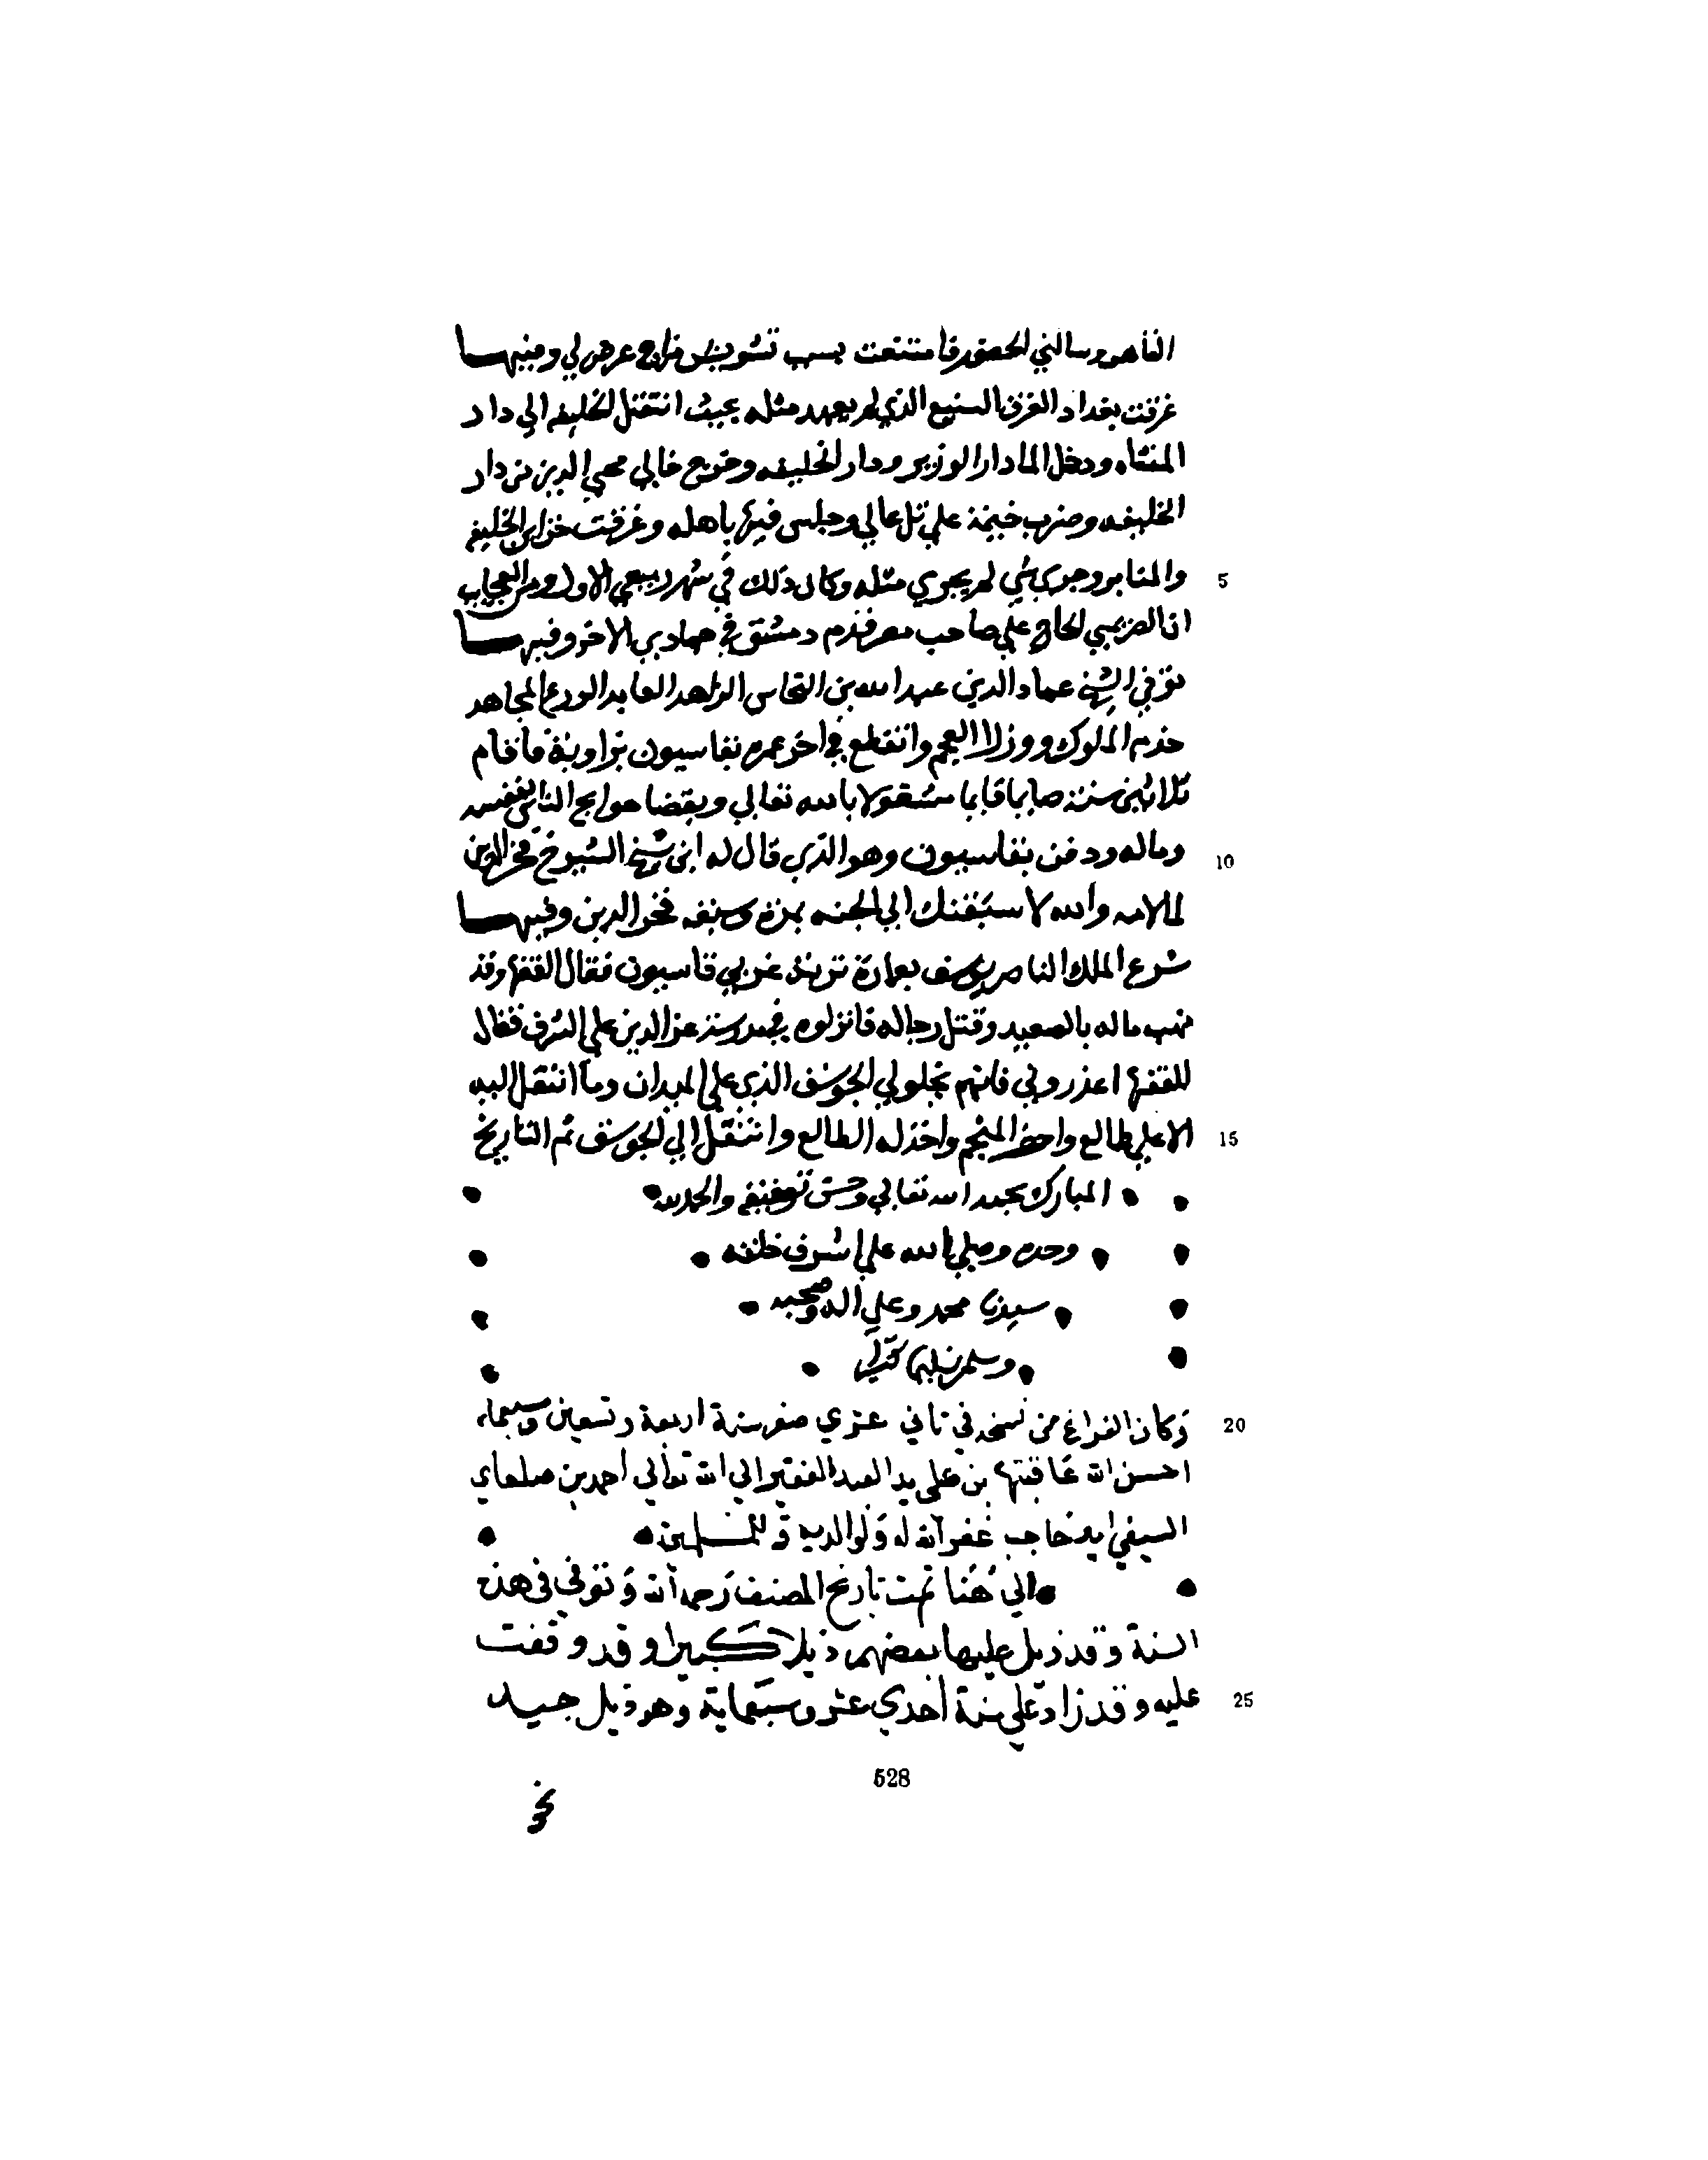 القاهره وسالني الحضور فامتنعت بسبب تشويش مزاج عرض لي وفيها
غرقت بغداد الغرق الشنيع الذي لم يعهد مثله بحيث انتقل الخليفه الي دار
المنشاه ودخل الما دار الوزير ودار الخليفه وخرج خالي محيي الدين من دار
الخليفه وضرب خيمة علي تل عالي وجلس فيها باهله وغرقت خزاين الخليفه
5 والمنابر وجري شي لم يجري مثله وكان ذلك في شهر ربيع الاول ومن العجايب
ان الحاج علي صاحب قدم دمشق في جمادي الاخر وفيها
توفي الشيخ عماد الدين عبد الله بن النحاس الزاهد العابد الورع المجاهد
خدم الملوك ووزر لا العجم وانقطع في اخر عمره بقاسيون بزاوية فاقام
ثلاثين سنة صايما قايما مشغولا بالله تعالي ويقضا حوايج الناس بنفسه
10 وماله ودفن بقاسيون وهو الذي قال له ابن شيخ الشيوخ فخر الدين
لملامه والله لا سبقنك الي الجنه فخر الدين وفيها
شرع الملك الناصر يوسف بعمارة تربة غربي قاسيون فقال الفقها وقد
نهب ماله بالصعيد وقتل رجاله فانزلوه في مدرسة عز الدين علي الشرف فقال
للفقها اعذروني فانهم نجلولي الجوسق الذي علي الميدان وما انتقل اليه
15 الا علي طالع واحضر المنجم واخذ له الطالع وانتقل الي الجوسق تم التاريخ
المبارك بحمد الله تعالي وحسن توفيقه والحمد لله
وحده وصلي الله علي اشرف خلقه
سيدنا محمد وعلي اله وصحبه
وسلم تسليما كثيرا
20 وكان الفراغ من نسخه في ثاني عشري صفر سنة اربعة وتسعين وسبعماء
احسن الله عاقبتها بن علي يد العبد الفقير الي الله تعالي احمد بن
السيفي حاجب غفر الله له ولوالديه وللمسلمين
الي هُنا تمت تاريخ المصنف رحمه الله وتوفي في هذه
السنة وقد ذيل عليها بعضهم ذيلا كبيرا وقد وقفت
25 عليه وقد زاد علي سنة أحدي عشر وسبعماية وهو ذيل جيد
528